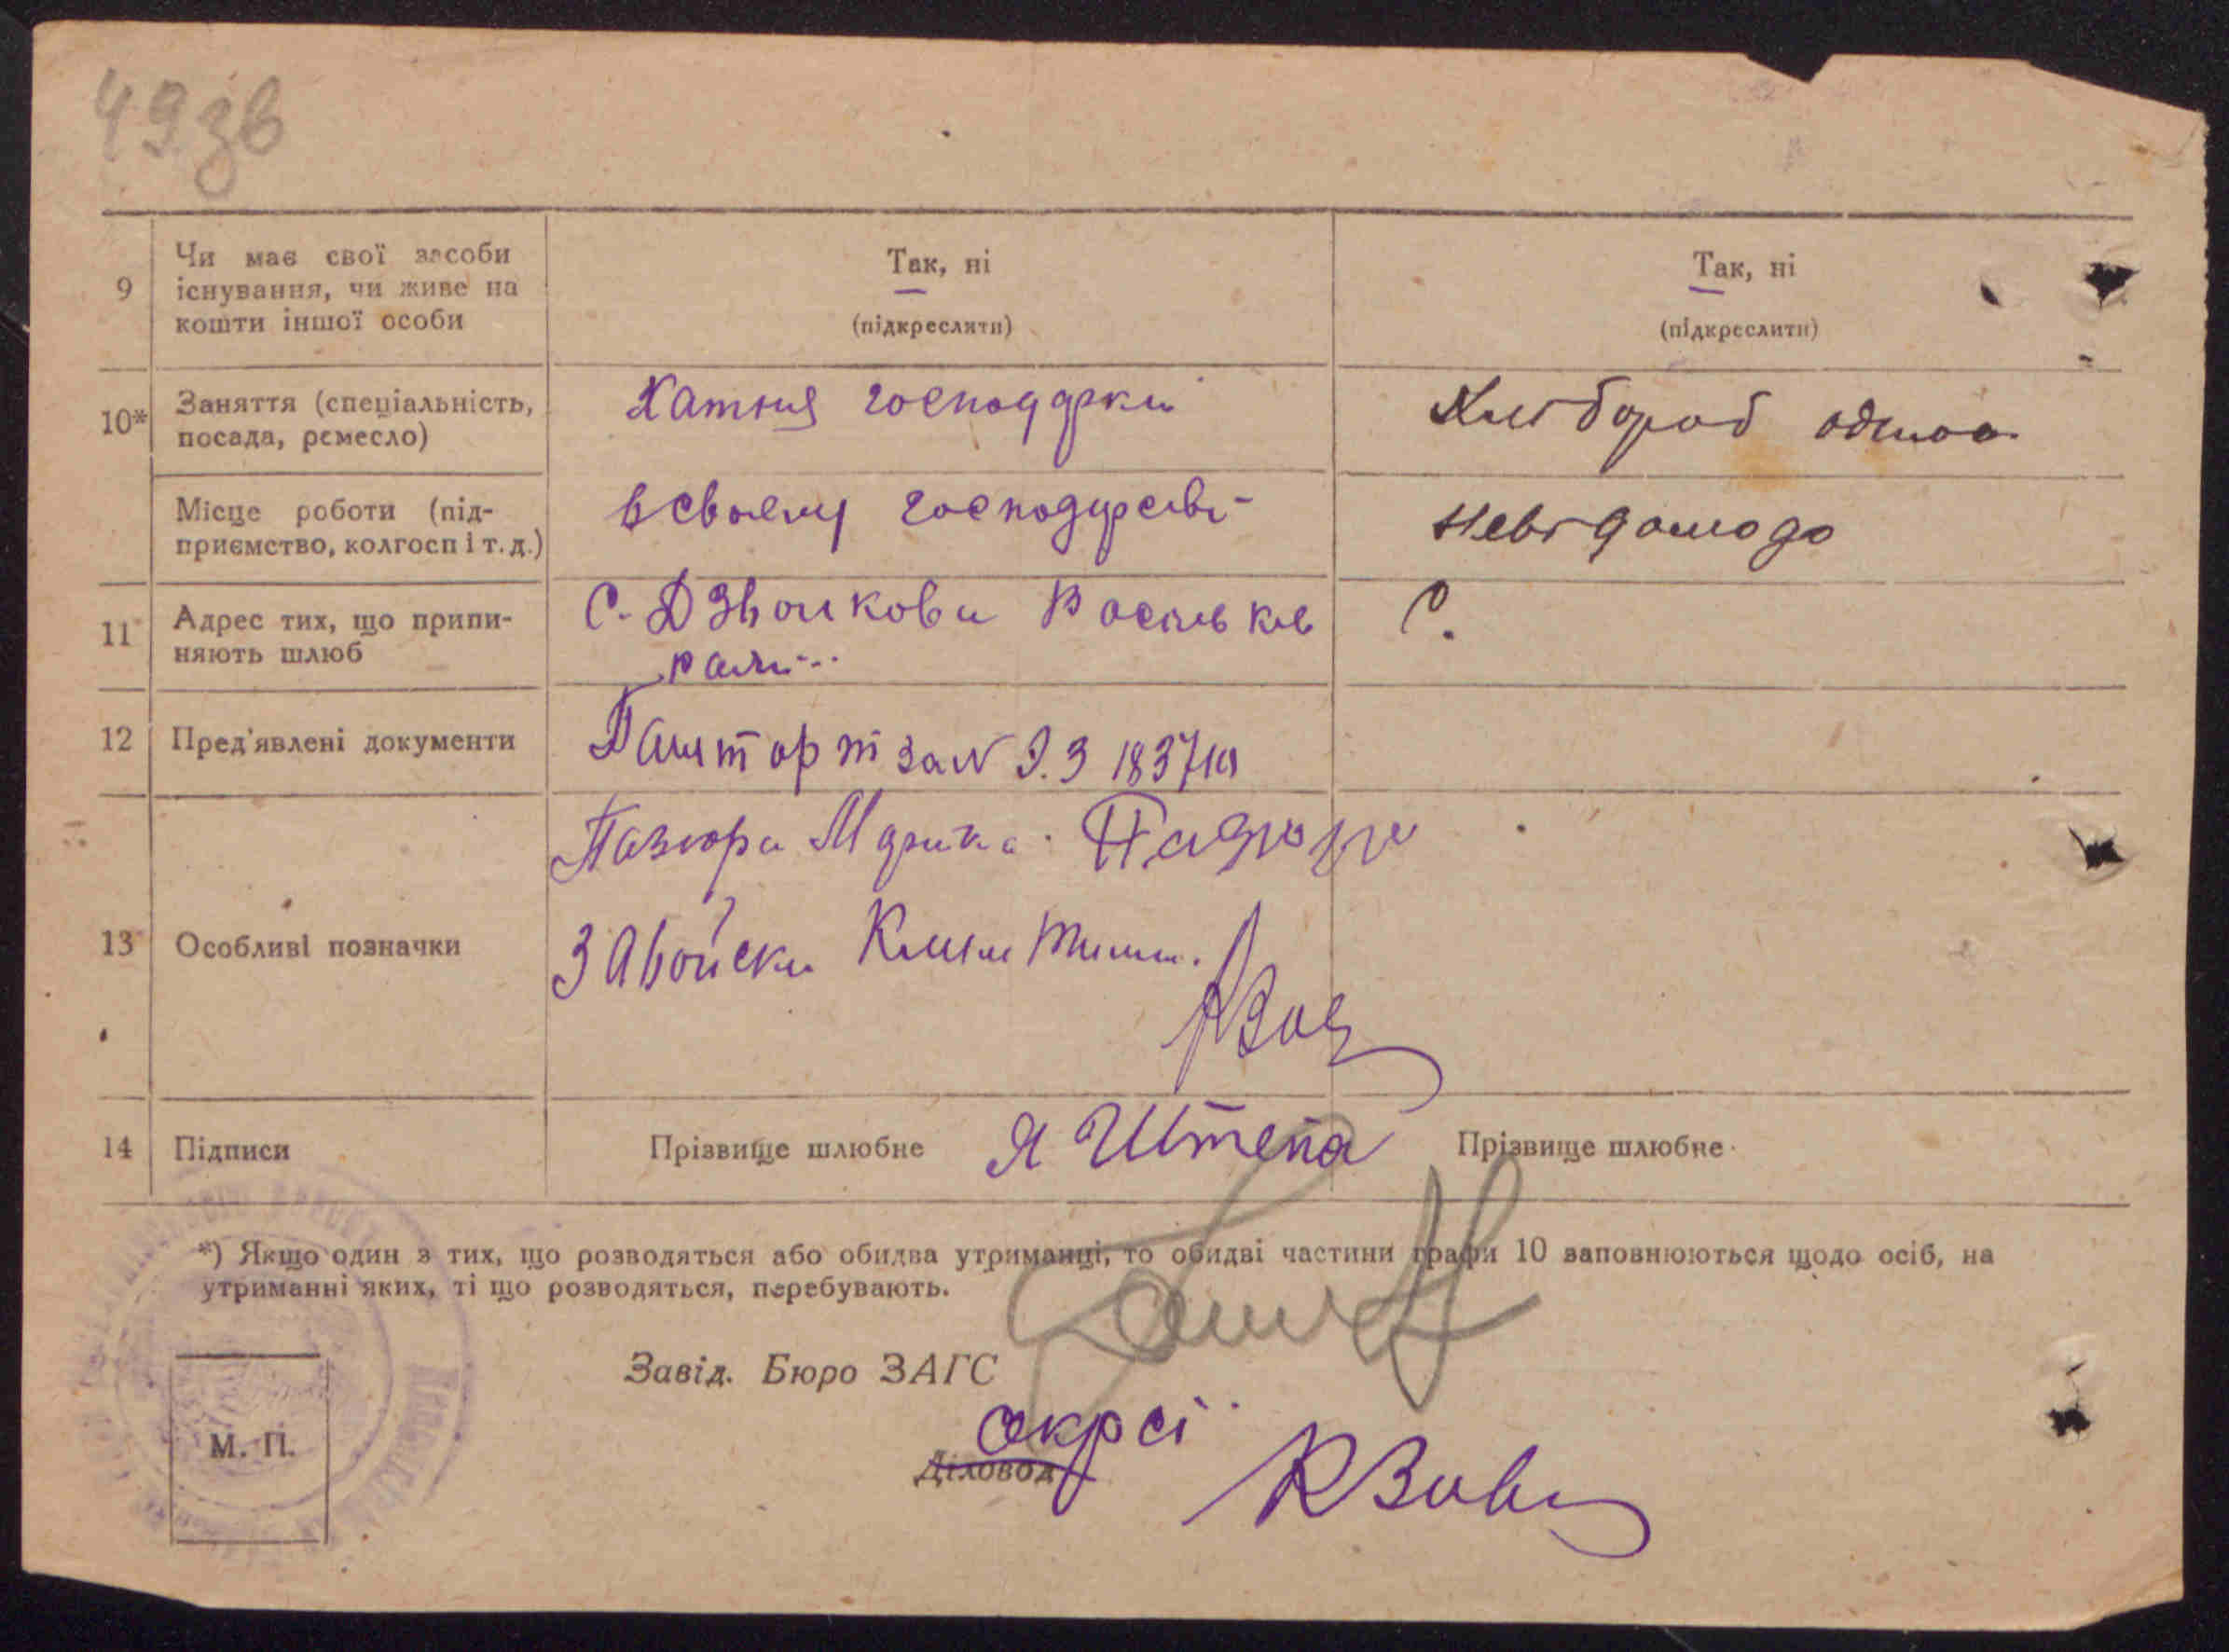 49зв
9
Чи має свої засоби
існування, чи живе на
кошти іншої особи
Так, ні
(підкреслити)
Так, ні
(підкреслити)
10*
Заняття (спеціальність,
посада, ремесло)
Хатня господарки
Хлібороб одноо.
Місце роботи (під-
приємство, колгосп і т. д.)
в своєму господарстві
невідомо де
11
Адрес тих, що припи-
няють шлюб
С. Дзвонкова Васильков
рай...
С.
12
Пред'явлені документи
Пашпорт за N
13
Особливі позначки
Пазюра Марина
Завойски Клим
14
Підписи
Прізвище шлюбне
Я Штепа
Прізвище шлюбне
*) Якщо один з тих, що розводяться або обидва утриманці, то обидві частини графи 10 заповнюються щодо осіб, на
утриманні яких, ті що розводяться, перебувають.
Завід. Бюро ЗАГС
М. П.
Діловод